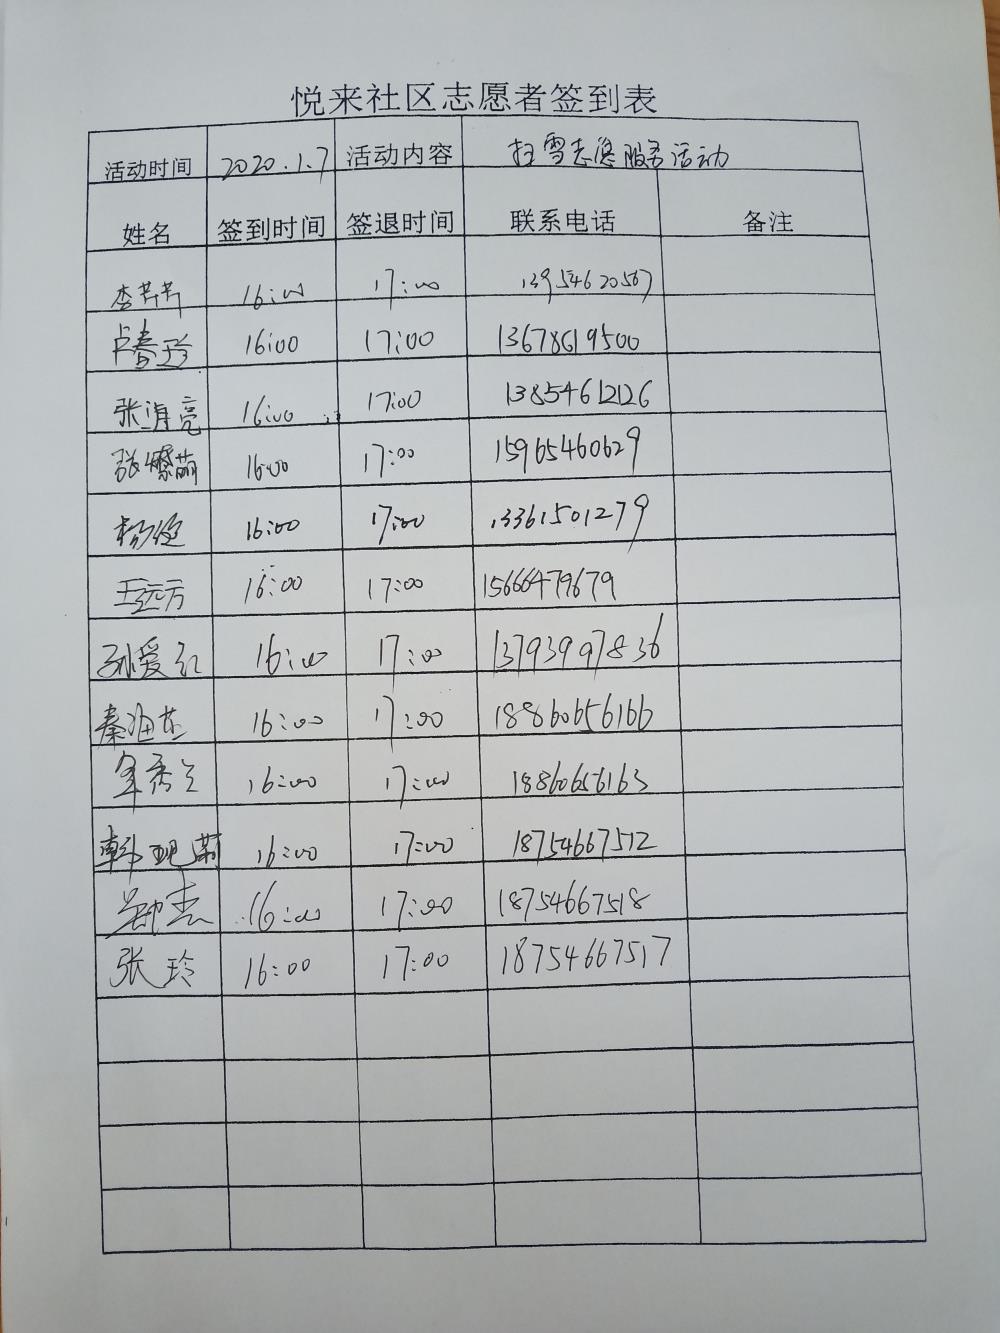 悦来社区志愿者签到表
活动时间 2020.1.7 活动内容 扫雪志愿服务活动
姓名 签到时间 签退时间 联系电话 备注
李芹芹 16:00 17:00 13954620567
卢春玲 16:00 17:00 13678619500
张海亮 16:00 17:00 13854612126
张 萌 16:00 17:00 15965460629
杨 16:00 17:00 13361501279
王远方 16:00 17:00 15666479679
孙爱红 16:00 17:00 13793997836
秦海燕 16:00 17:00 18860656166
秀兰 16:00 17:00 18860656163
韩艳莉 16:00 17:00 18754667512
杰 16:00 17:00 18754667518
张玲 16:00 17:00 18754667517